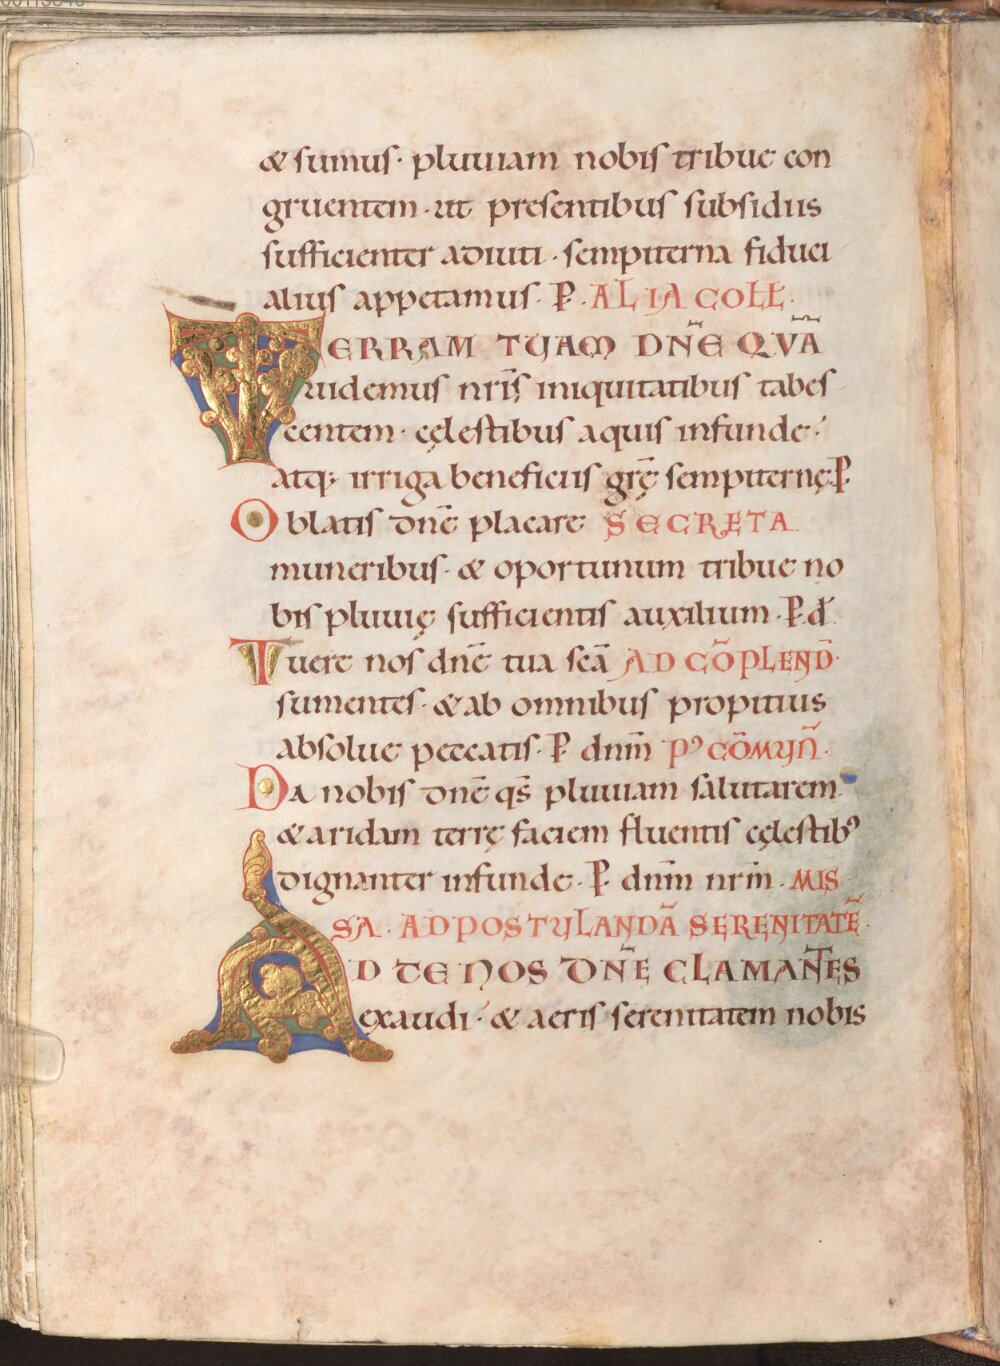 & sumus· pluuiam nobis tribue con
gruentem· ut presentibus subsidiis
sufficienter adiuti· sempiterna fiduci
alius appetamus· P̲· ALIA COLL̅·
TERRAM TUAM DN̅E QUA̅
uidemus nr̅is iniquitatibus tabes
centem· cęlestibus aquis infunde·
atq; irriga beneficiis gr̅ę sempiternę P̲
Oblatis dn̅e placare SECRETA
muneribus· & oportunum tribue no
bis pluuię sufficientis auxilium· P̲ d̅
Tuere nos dn̅e tua sc̅a AD CO̅PLEND̅·
sumentes· & ab omnibus propitius
absolue peccatis· P̲ dn̅m P᾽ CO̅MUN̅·
Da nobis dn̅e qs̅ pluuiam salutarem·
& aridam terrę faciem fluentis cęlestib᾽
dignanter infunde· P̲ dn̅m nr̅m· MIS
SA· AD POSTULANDA̅ SERENITATE̅·
AD TE NOS DN̅E CLAMANTES
exaudi· & aeris serenitatem nobis